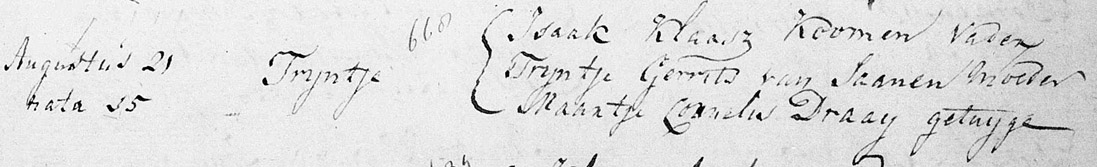 668
Isaak Klaasz Koomen Vader
Augustus 21 Tryntje Tryntje Gerrits van Saanen Moeder
nata 15 Maartje Cornelis Draay getuyge